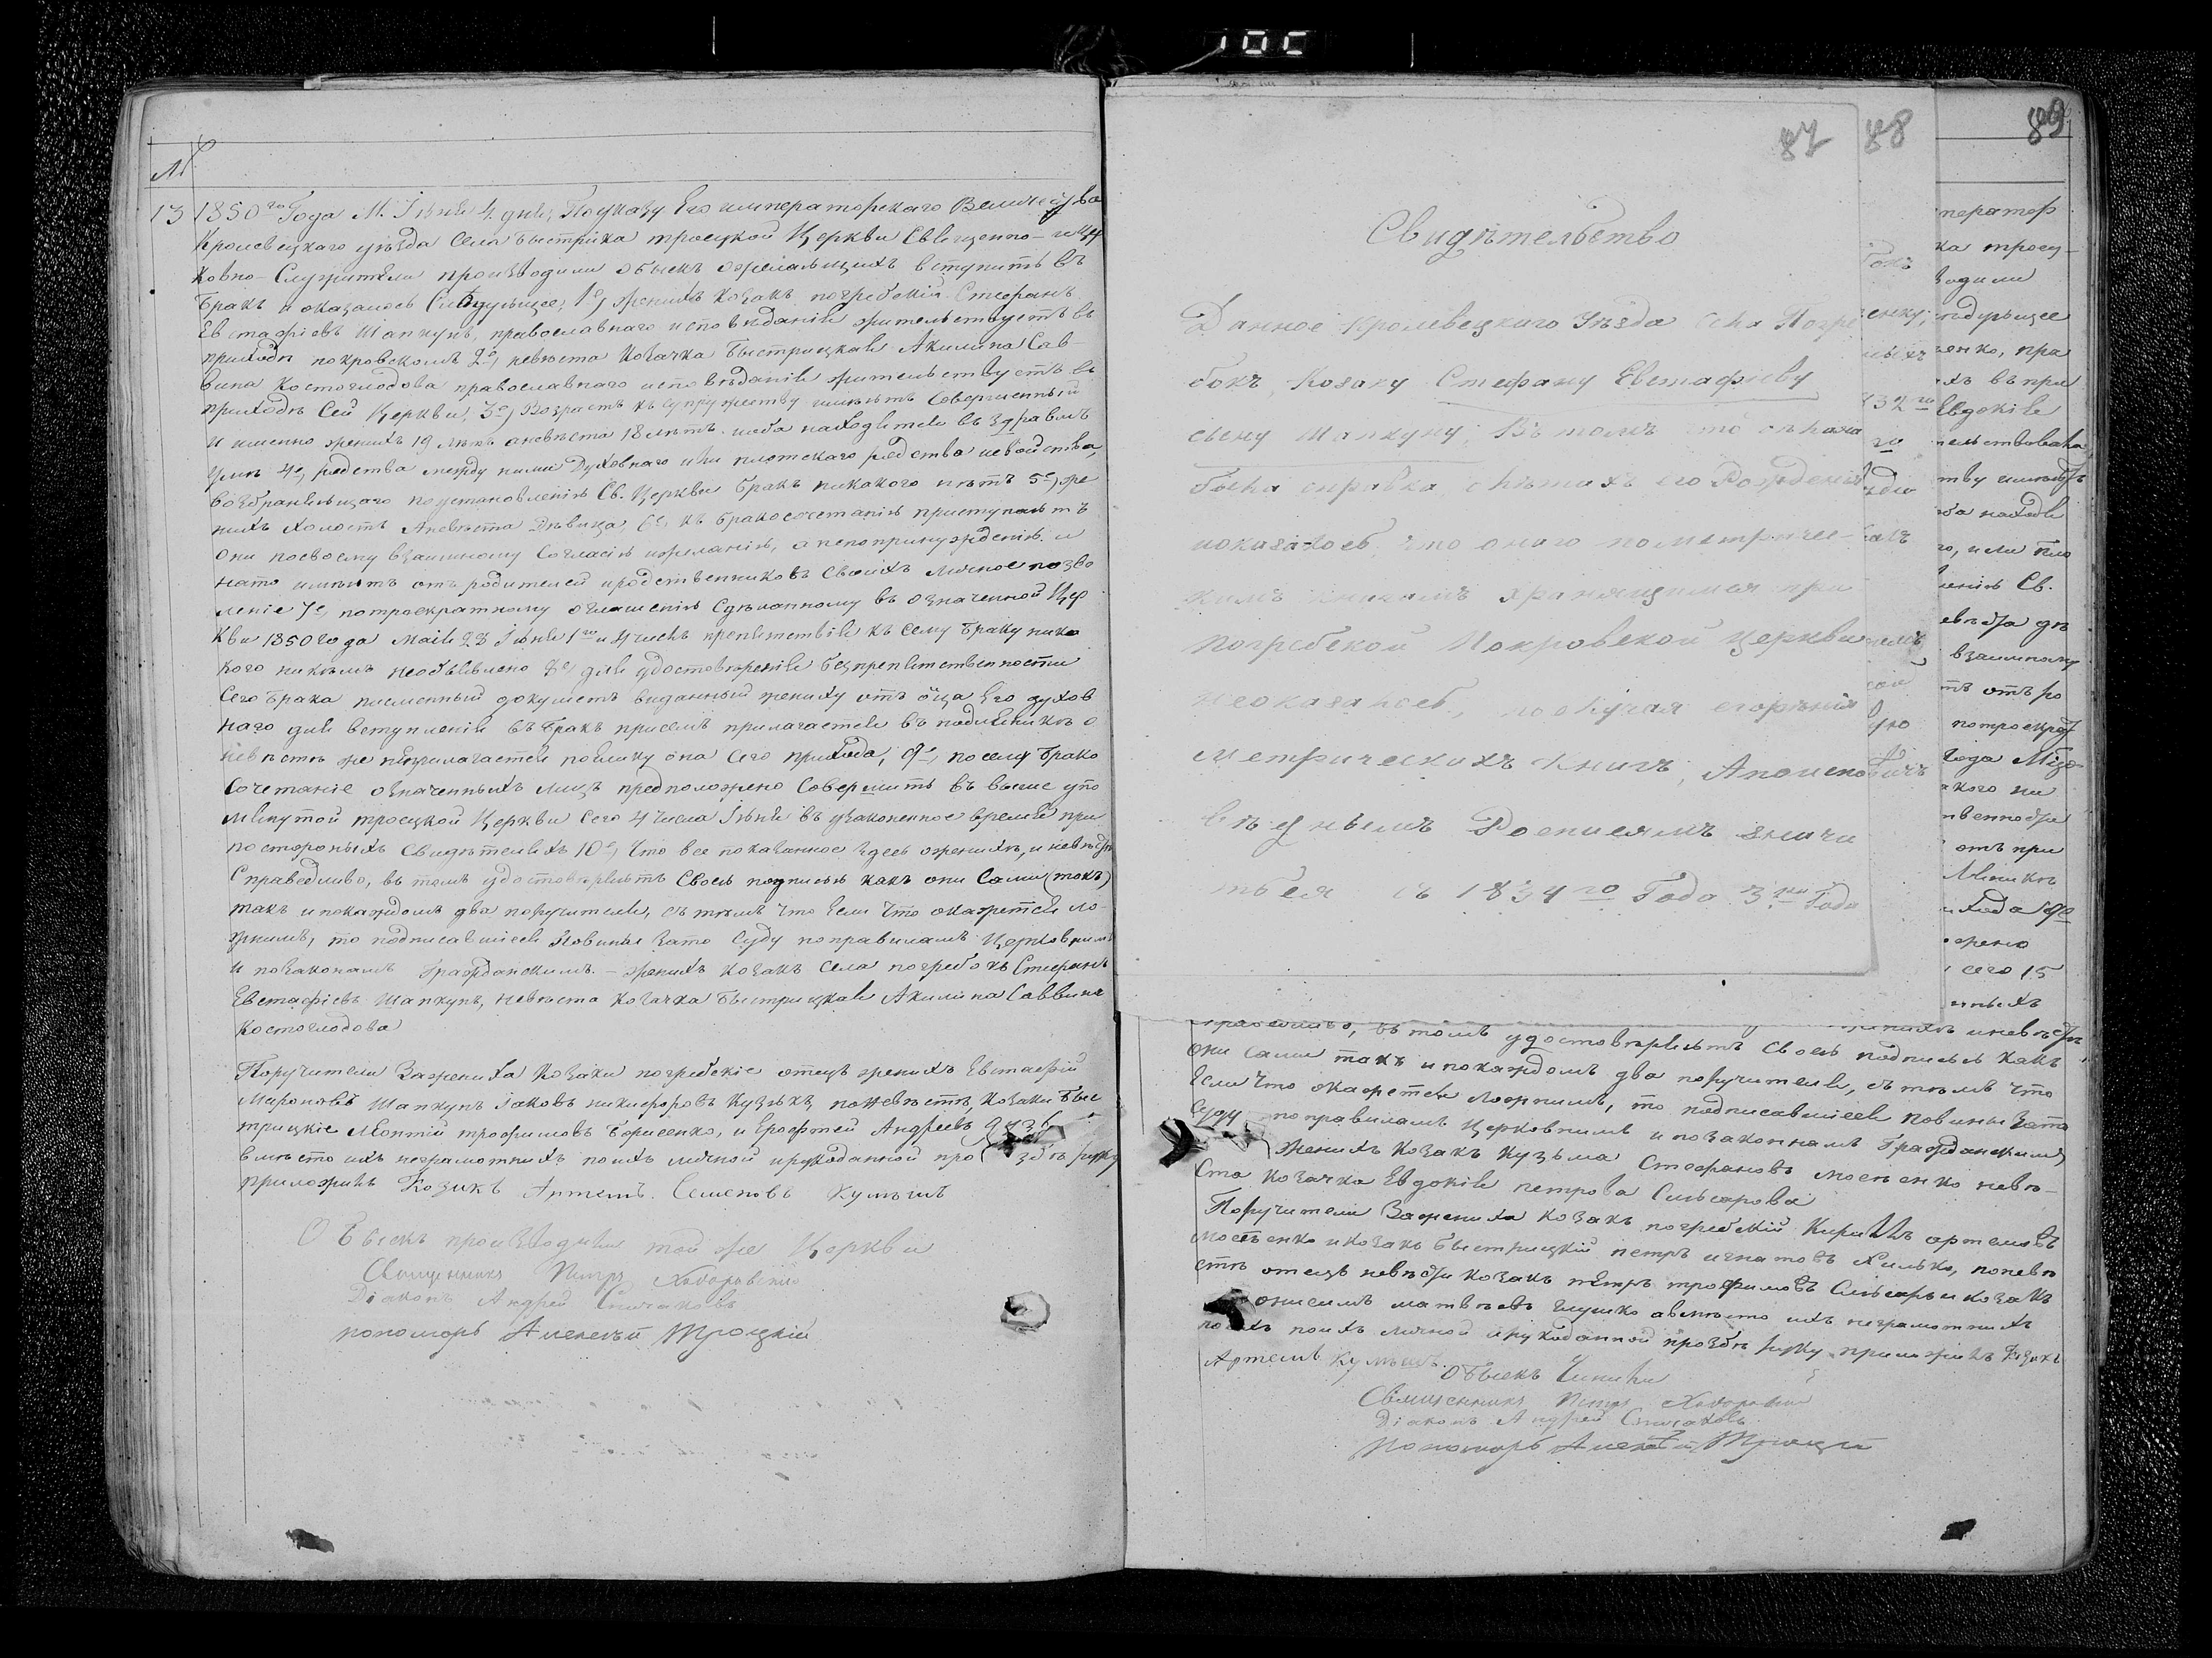 №
13 1850го Года М. Іюня 4. дня, По указу Его императорскаго Величества
Кролевецкаго уѣзда села Быстрика троецкой Церкви Священно- и Цер
ковно-Служители производили обыскъ ожелающихъ вступить въ
бракъ и оказалось Слѣдующее, 1е, женихъ козакъ погребскій Стефанъ
Евстафіевъ Шапкунъ, православнаго исповѣданія жительствуетъ въ
приходѣ покровскомъ 2е, невѣста козачка Быстрицкая Акилина Сав-
вина Костоглодова православнаго исповѣданія жительствуетъ въ
приходѣ Сей Церкви, 3е, Возрастъ къ супружеству имѣютъ Совершенный
и именно женихъ 19 лѣтъ а невѣста 18 лѣтъ. и оба находятся въ здравомъ
умѣ 4е, родства между ними Духовнаго или плотскаго родства и свойства,
возбраняющаго по установленію Св. Церкви бракъ никакого нѣтъ 5е, же
нихъ холостъ А невѣста Дѣвица, 6е, къ бракосочетанію приступаютъ
Они посвоему взаимному Согласію ижеланію, а непопринужденію. и
нато имѣютъ отъ родителей иродственниковъ Своихъ личное позво
леніе 7е, потроекратному оглашенію Сдѣланному въ означенной Цер
кви 1850 года Маія 28 Іюня 1го и 4 числъ препятствія къ сему браку ника
кого никѣмъ необъявлено 8е, для удостовѣренія безпрепятственности
Сего брака писменный документъ виданный жениху отъ оца Его духов
наго для вступленія въ бракъ присемъ прилагается въ подлинникѣ о
невѣстѣ же неприлагается поелику она Сего прихода, 9е, посему брако
Сочетаніе означенныхъ лицъ предположено Совершить въ выше упо
мянутой троецкой Церкви Сего 4 числа Іюня въ узаконенное время при
постороныхъ Свидѣтеляхъ 10е, Что все показанное здесь оженихѣ, и невѣстѣ
Справедливо, въ томъ удостовѣряютъ Своею подписью какъ они Сами (такъ)
такъ ипокаждомъ два поручителя, съ тѣмъ что Если Что окажется ло-
жнимъ, то подписавшіеся Повинны Зато Суду поправиламъ Церковнимъ
И позаконамъ Гражданскимъ. - женихъ козакъ Села погребокъ Стефанъ
Евстафіевъ Шапкунъ, невѣста козачка Быстрицкая Акилина Саввина
Костоглодова
Поручители Заженіха Козаки погребскіе отецъ жениха Евстафій
Мироновъ Шапкунъ Іаковъ никифоровъ понѣвѣстѣ, козаки Быс
трицкіе Леонтій трофимовъ Борисенко, и Ерофтей Андреевъ
вмѣсто ихъ неграмотнихъ поихъ личной ирукоданной про зьбѣ руку
приложилъ Козакъ Артемъ. Семеновъ Кулѣшъ
Обыскъ производили той же Церкви
Священникъ Петръ Ходоровскій
Діаконъ Андрей Спичаковъ
пономарь Алексѣй Троцкій
87
Свидѣтельство
Данное Кролевецкаго Уѣзда села Погре
бокъ, Козаку Стефану Евстафіеву
сыну Шапкуну; Въ томъ что дѣлана
была справка о лѣтахъ его Рожденія
иоказалось, что онаго пометричес-
кимъ книгамъ хранящимся при
погребской Покровской церкви
неоказалось, послучая егорѣнія
метрическихъ книгъ, Апоиспо
вѣднымъ Росписямъ значи
тбся съ 1834го Года 3хъ Года
88
бокъ
енку;
89
ператор
ка троец-
водили
ледующее
енко, пра
хъ въ при
Евдокія
тельствовала
тву имѣютъ
ба находя
го, или пло
ленію Св.
евѣста дѣ
взаимному
тъ отъ ро
потроекрат
Года
акого ни
твенности
отъ при
хода 9е
ожено
сего 15
нныхъ
справедливо, въ томъ удостовѣряютъ Своею подписью какъ
они сами такъ ипокаждомъ два поручителя, съ тѣмъ что
Если Что окажется ложнимъ, то подписавшіеся повинны Зато
Суду поправиламъ Церковнимъ и позаконамъ Гражданскимъ
Женихъ козакъ Кузьма Стефановъ Мосѣенко невѣ-
ста козачка Евдокія петрова Слѣсарова
Поручители Заженіха козакъ погребскій Кириллъ артемовъ
Мосѣенко икозакъ Быстрицкій петръ игнатовъ Хилько, поневѣ
стѣ отецъ невѣсты козакъ петръ трофимовъ Слѣсарь и козакъ
онисимъ матвѣевъ Глушко авмѣсто ихъ неграмотнихъ
поихъ личной ирукоданной прозбѣ руку приложилъ Козакъ
Артемъ Кулѣшъ.
Обыскъ Чинили
Священникъ Петръ Ходоровскій
Діаконъ Андрей Спичаковъ
пономарь Алексѣй Троцкій